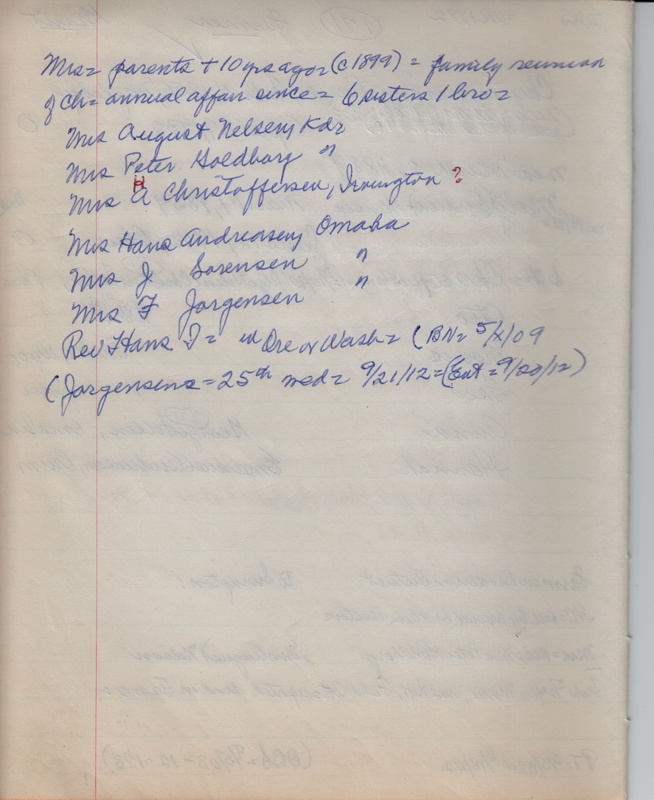 Mrs = parents + 10 yrs ago = (c 1899) = family reunion
of ch = annual affair since = 6 sisters 1 bro =
Mrs August Nelsen, Kdr
Mrs Peter Holdbory "
H
Mrs A Christoffersen, Irvington ?
Mrs Hans Andreasen, Omaha
Mrs J. Sorensen "
Mrs F Jorgensen "
Rev Hans J = in Ore or Wash = (BN = 5/x/09
(Jorgensens = 25th wed = 9/21/12 = (Ent = 9/20/12)